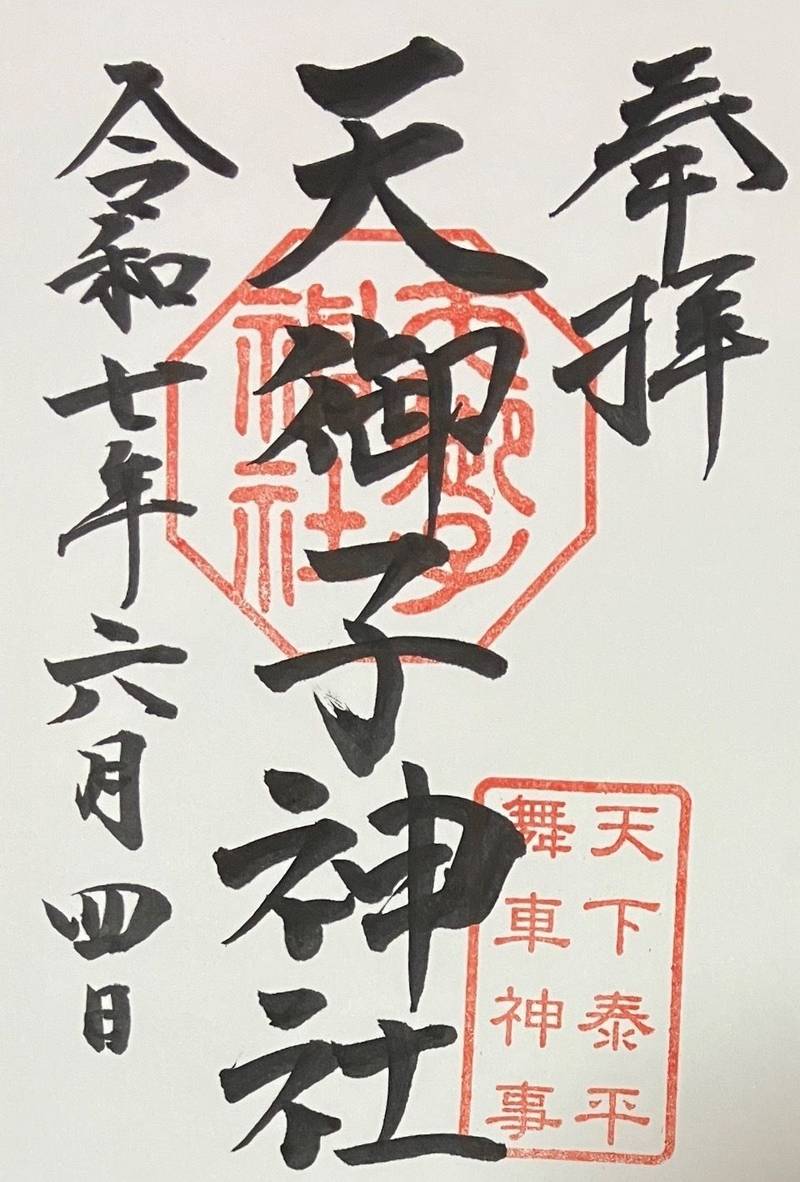 奉拝
天御子神社
天御子
神社
天下泰平
舞車神事
令和七年六月四日